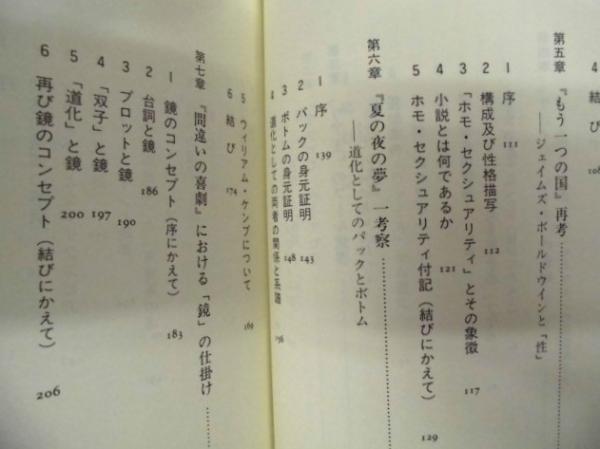 108
第五章 『もう一つの国』再考
――ジェイムズ・ボールドウインと「性」
1 序 111
2 構成及び性格描写 112
3 「ホモ・セクシュアリティ」とその象徴 117
4 小説とは何であるか 121
5 ホモ・セクシュアリティ付記（結びにかえて） 129
第六章 『夏の夜の夢』一考察
――道化としてのパックとボトム
1 序 139
2 パックの身元証明 143
3 ボトムの身元証明 148
4 道化としての両者の関係と系譜 156
5 ウィリアム・ケンプについて 169
6 結び 174
第七章 『間違いの喜劇』における「鏡」の仕掛け
1 鏡のコンセプト（序にかえて） 183
2 台詞と鏡 186
3 プロットと鏡 190
4 「双子」と鏡 197
5 「道化」と鏡 200
6 再び鏡のコンセプト（結びにかえて） 206